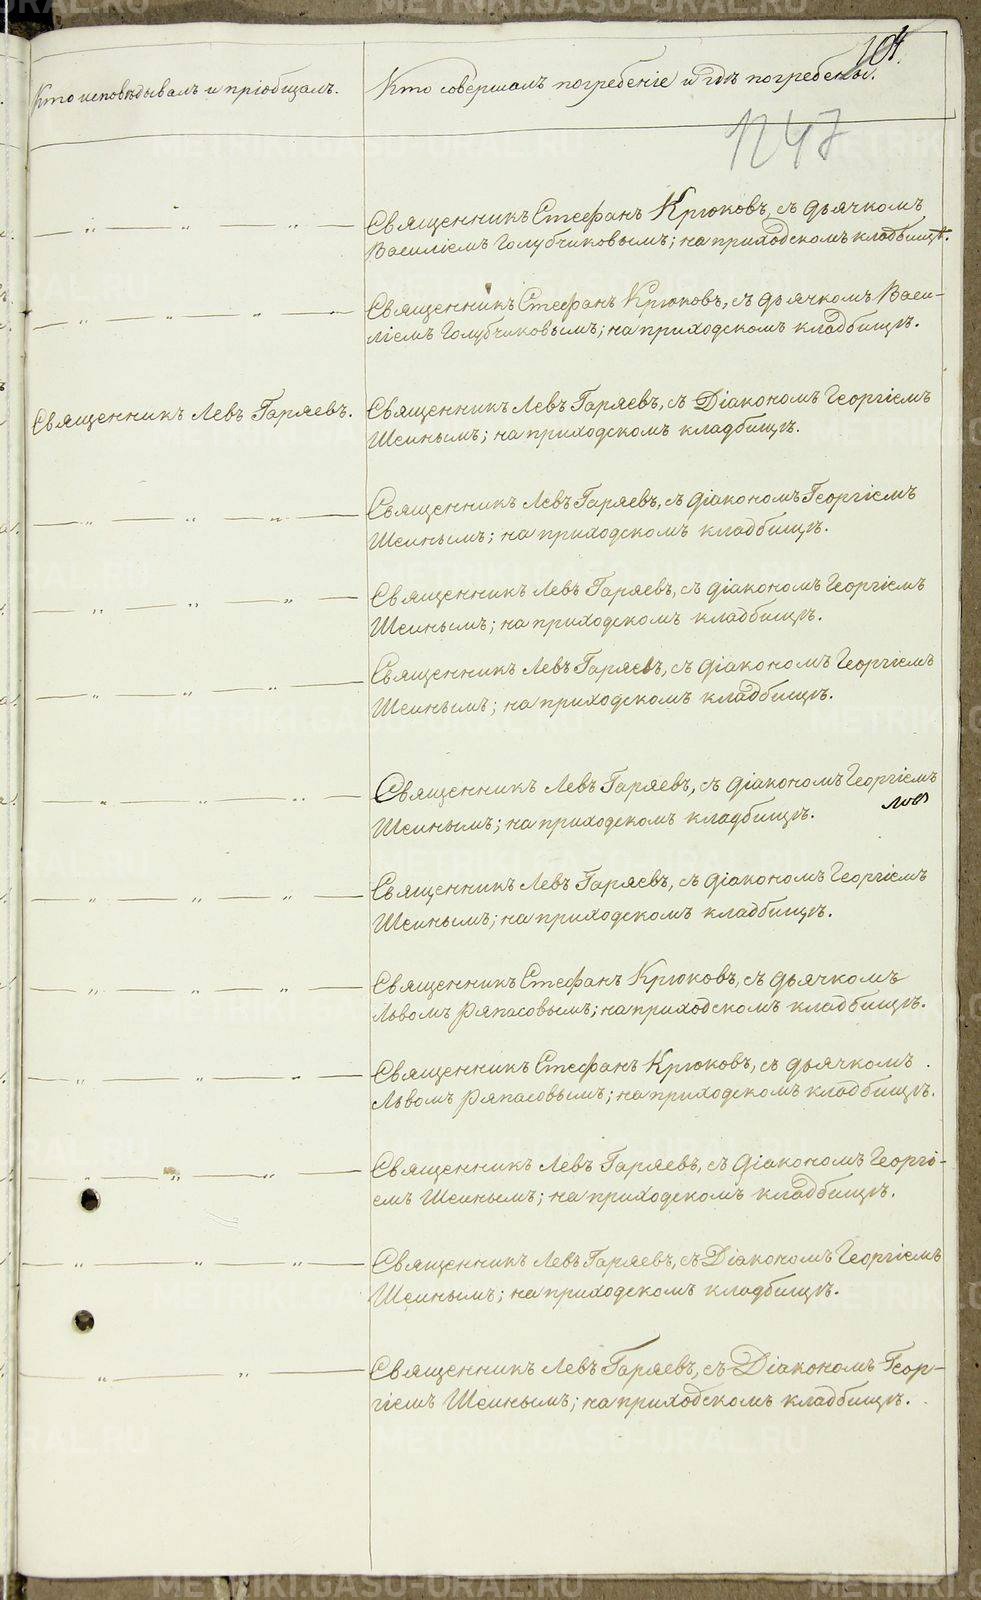 104.
Кто исповѣдывалъ и пріобщалъ.
Кто совершалъ погребеніе и гдѣ погребены.
1247
Священникъ Стефанъ Крюковъ, съ дьячкомъ
Василіемъ Голубчиковымъ; на приходскомъ кладбищѣ.
Священникъ Стефанъ Крюковъ, съ дьячкомъ Васи-
ліемъ Голубчиковымъ; на приходскомъ кладбищѣ.
Священникъ Левъ Гаряевъ.
Священникъ Левъ Гаряевъ, съ Діакономъ Георгіемъ
Шеинымъ; на приходскомъ кладбищѣ.
Священникъ Левъ Гаряевъ, съ діакономъ Георгіемъ
Шеинымъ; на приходскомъ кладбищѣ.
Священникъ Левъ Гаряевъ, съ діакономъ Георгіемъ
Шеинымъ; на приходскомъ кладбищѣ.
Священникъ Левъ Гаряевъ, съ діакономъ Георгіемъ
Шеинымъ; на приходскомъ кладбищѣ.
Священникъ Левъ Гаряевъ, съ діакономъ Георгіемъ
Шеинымъ; на приходскомъ кладбищѣ.
Священникъ Левъ Гаряевъ, съ діакономъ Георгіемъ
Шеинымъ; на приходскомъ кладбищѣ.
Священникъ Стефанъ Крюковъ, съ дьячкомъ
Львомъ Ряпасовымъ; на приходскомъ кладбищѣ.
Священникъ Стефанъ Крюковъ, съ дьячкомъ
Львомъ Ряпасовымъ; на приходскомъ кладбищѣ.
Священникъ Левъ Гаряевъ, съ діакономъ Георгі-
емъ Шеинымъ; на приходскомъ кладбищѣ.
Священникъ Левъ Гаряевъ, съ Діакономъ Георгіемъ
Шеинымъ; на приходскомъ кладбищѣ.
Священникъ Левъ Гаряевъ, съ Діакономъ Геор-
гіемъ Шеинымъ; на приходскомъ кладбищѣ.
METRIKI.GASU-URAL.RU